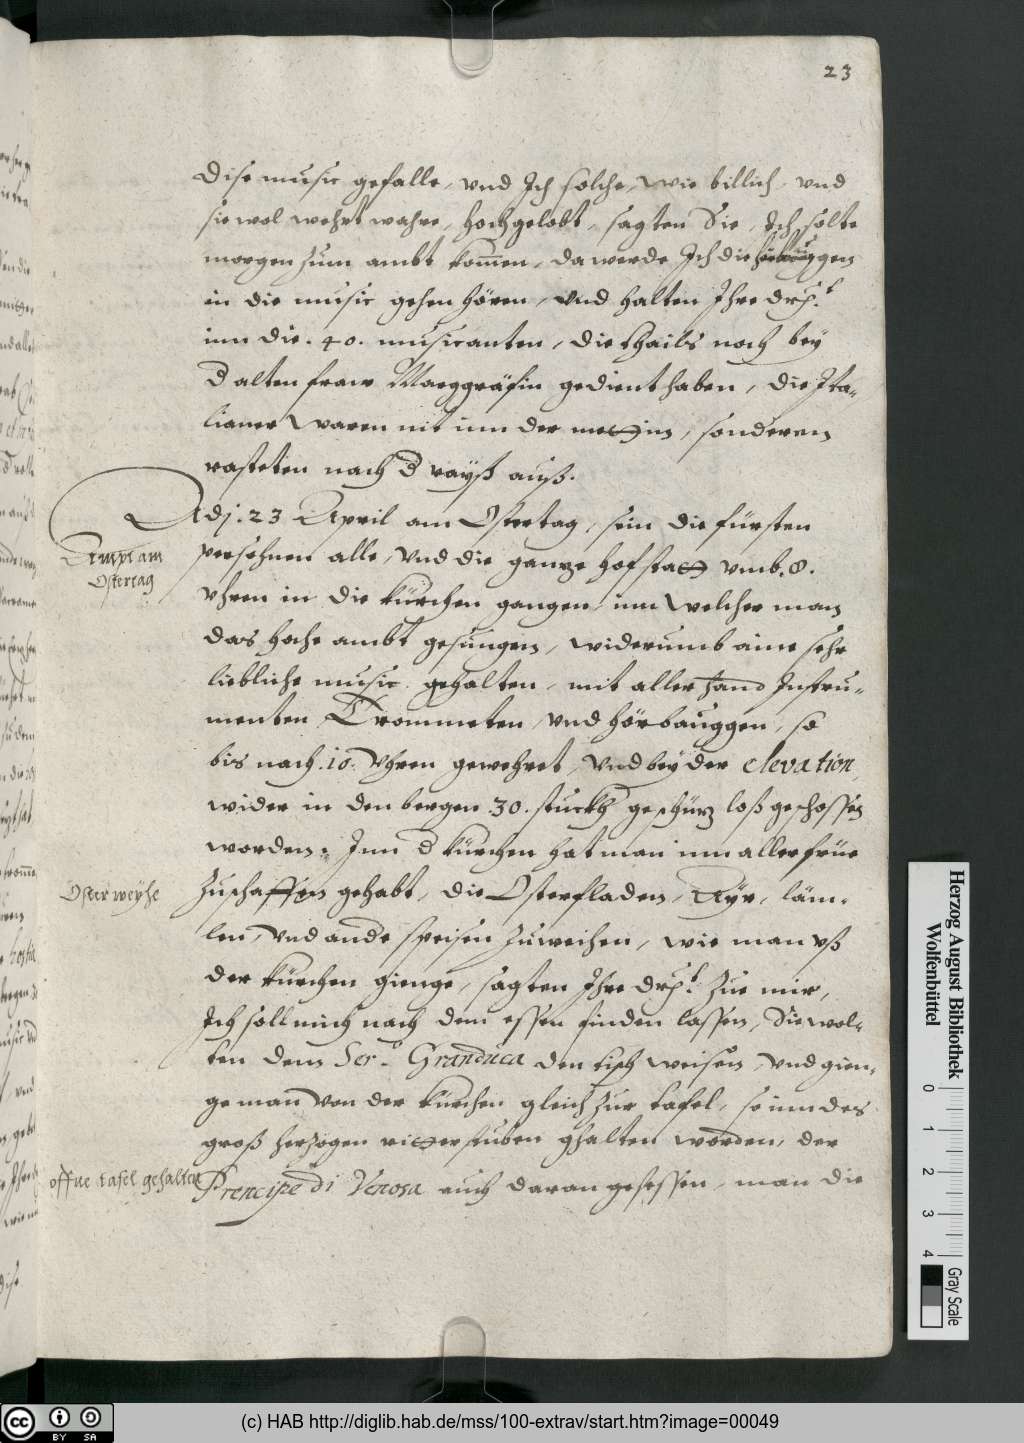 23
dise music gefalle, vnd Ich solche, wie billich, vnd
sie wol wehrt wahre, hochgelobt, sagten Sie, Ich solte
morgen zum ambt kom̄en, da werde Ich die hörbauggen
in die music gehen hören, vnd halten Ihre drl.
inn die .40. musicanten, die thails noch bey
d alten fraw Marggräfin gedient haben, die Ita-
lianer waren nit inn der mettin, sonderen
rasteten nach d raÿß auß.
Adj. 23 April am Ostertag, sein die fürsten
persohnen alle, vnd die ganze hofstatt vmb .8.
Vhren in die kürchen gangen, inn welcher man
das hohe ambt gesungen, widerumb aine sehr
liebliche music gehalten, mit aller hand Instru-
menten, Trommeten, vnd hörbauggen, so
bis nach .10. Vhren gewehret, vnd bey der elevation
wider in den bergen .30. stuckh geschüz loß geschossen
worden: Inn d kürchen hat man inn aller früe
zuschaffen gehabt, die Osterfladen, Aÿr, läm-
len, vnd andre speisen zuweihen, wie man vß
der kürchen gienge, sagten Ihre drl. zue mir,
Ich soll mich nach dem essen finden lassen, Sie wol-
ten dem Ser.º Granduca den tisch weisen, vnd gien-
ge man von der kürchen gleich zur tafel, so inn des
groß herzogen ritterstuben ghalten worden, der
Prencipe di Venosa auch daran gesessen, man die
Ampt am
Ostertag
Osterweÿhe
offne tafel gehalten
Herzog August Bibliothek
Wolfenbüttel
0 1 2 3 4
Gray Scale
cc BY SA
(c) HAB http://diglib.hab.de/mss/100-extrav/start.htm?image=00049